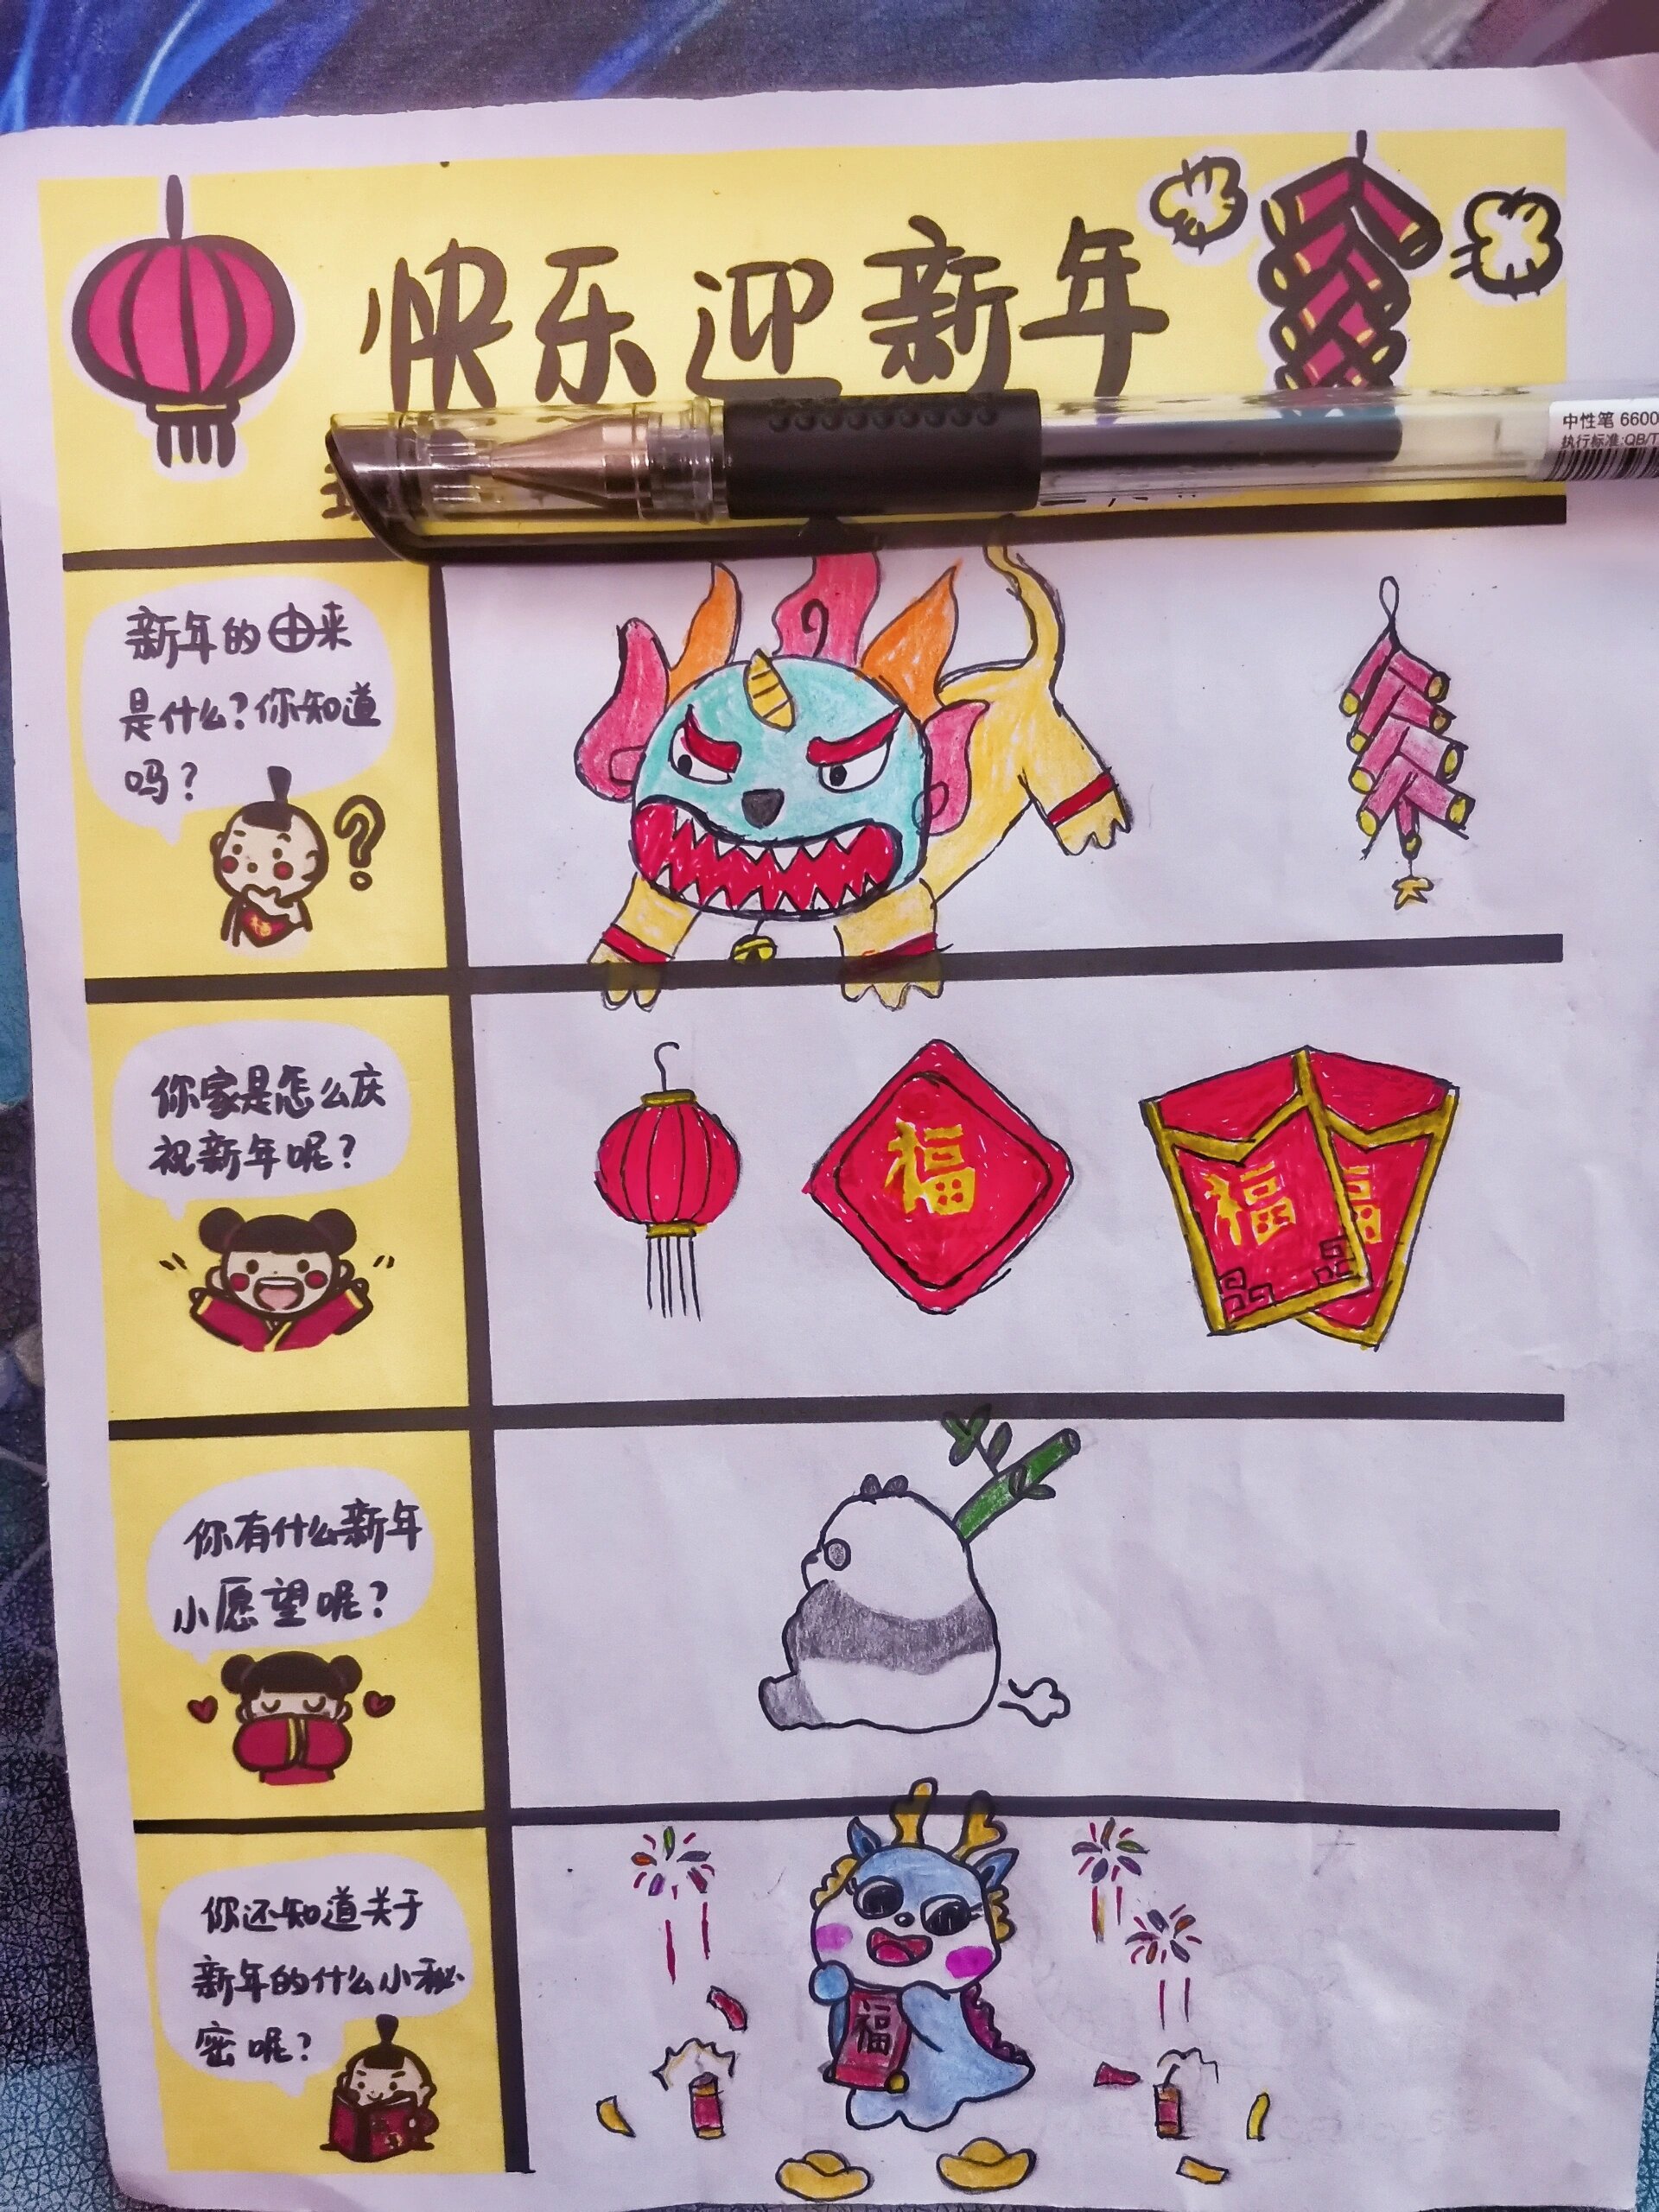 快乐迎新年
中性笔 6600
执行标准:QB/T
新年的由来
是什么?你知道
吗?
你家是怎么庆
祝新年呢?
福
福
福
你有什么新年
小愿望呢?
你还知道关于
新年的什么小秘
密呢?
福